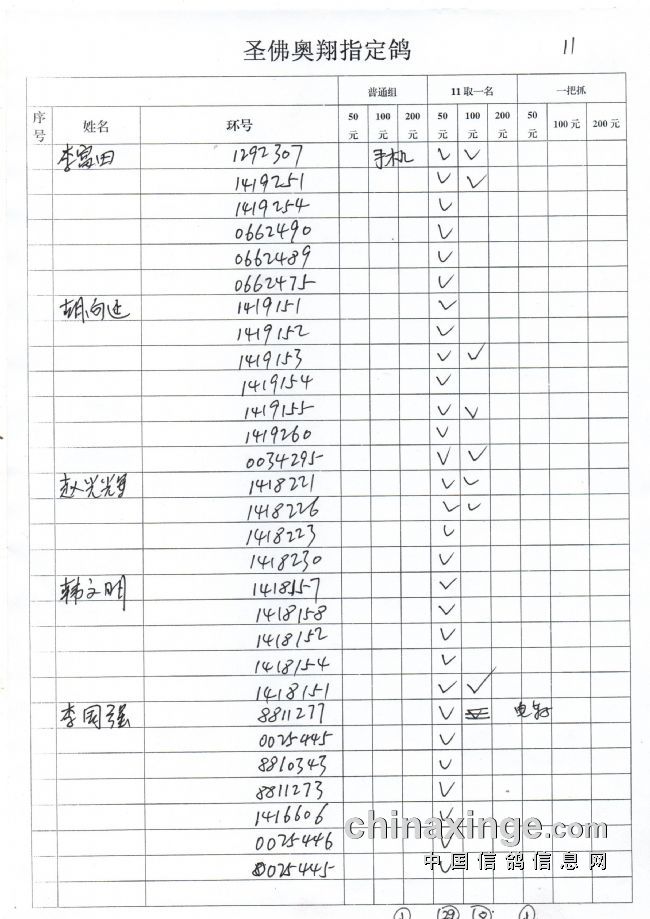 圣佛奥翔指定鸽 11
序号 姓名 环号 普通组 11取一名 一把抓
50元 100元 200元 50元 100元 200元 50元 100元 200元
李富田 1292307 手机 ✓ ✓
1419251 ✓ ✓
1419254 ✓
0662490 ✓
0662489 ✓
0662475 ✓
胡向 1419151 ✓
1419152 ✓
1419153 ✓ ✓
1419154 ✓
1419155 ✓ ✓
1419260 ✓
0034295 ✓ ✓
赵 1418221 ✓ ✓
1418226 ✓ ✓
1418223 ✓
1418230 ✓
韩文明 1418157 ✓
1418158 ✓
1418152 ✓
1418154 ✓
1418151 ✓ ✓
李国强 8811277 ✓
0025445 ✓
8810343 ✓
8811273 ✓
1416606 ✓
0025446 ✓
0025445 ✓
chinaxinge.com
中国信鸽信息网